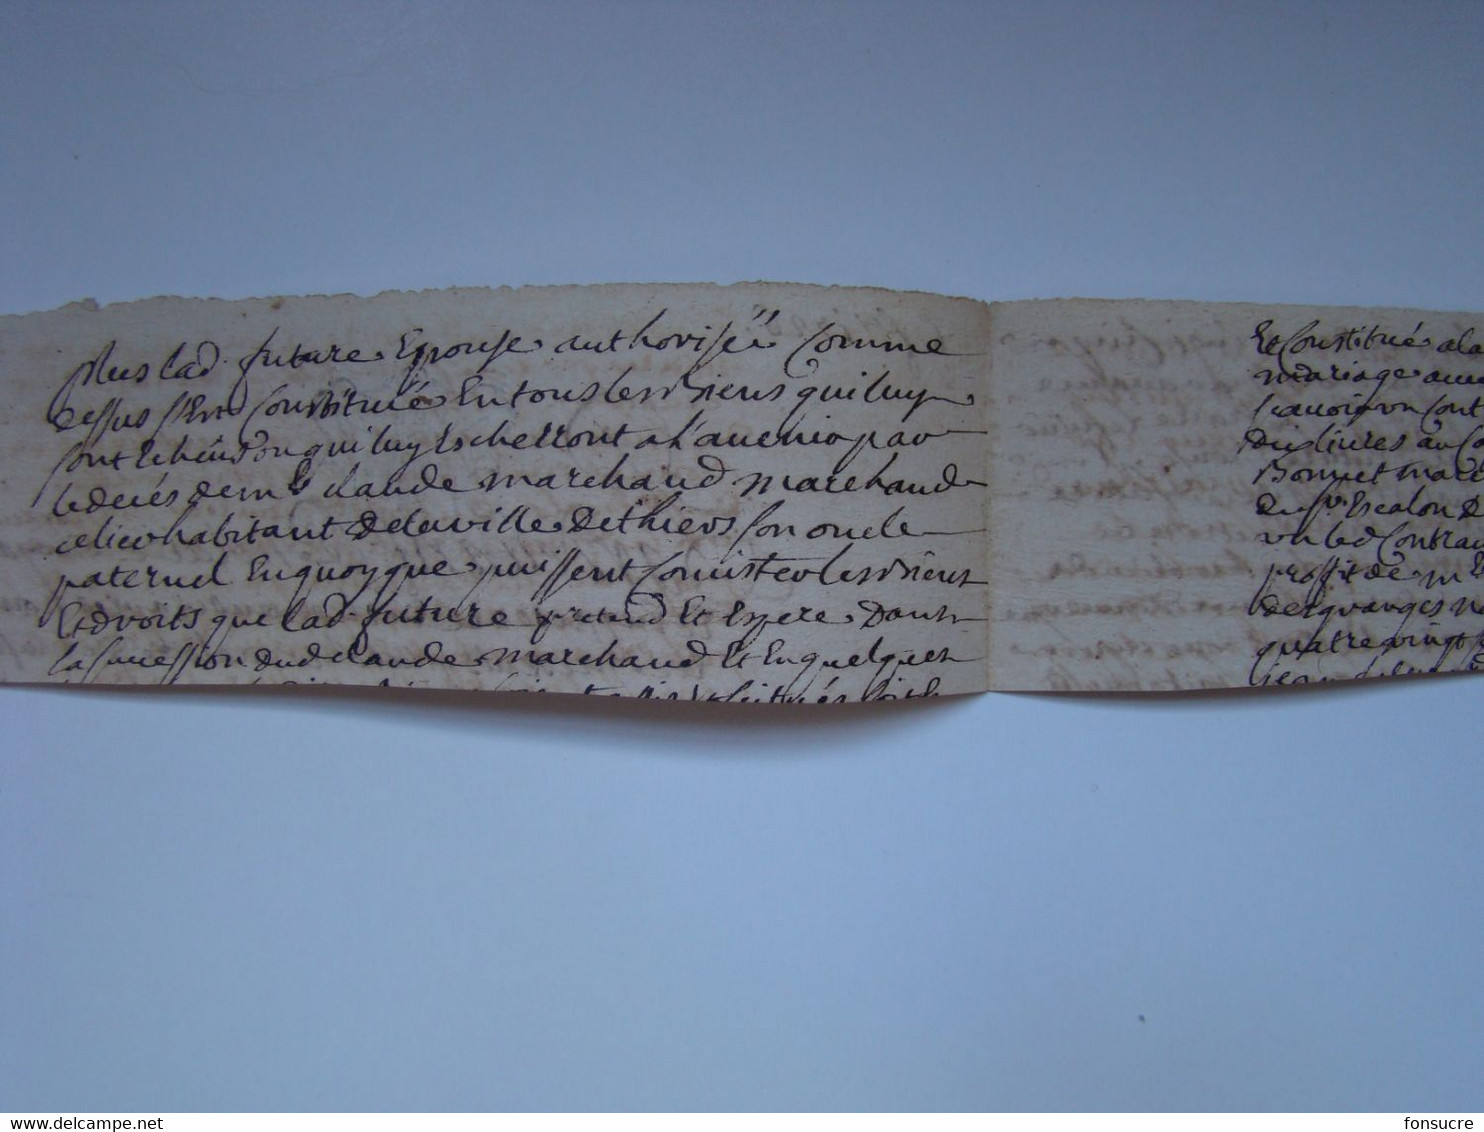 plus lad. future Epouse authorisée Comme
dessus s'Est Constituée En tous les Biens qui luy
sont Echeus ou qui luy Escherront a l'auenir par
le decés de mre Claude marchand marchand
habitant de la ville de thiers son oncle
paternel En quoy que puissent Consister les Biens
Et droits que lad. future pretend Et Espere Dans
la succession dud Claude marchand Et En quelques
Et Constitué a la
mariage auec
scauoir un
Dix liures au
Bonnet
du Sr Escalon
un led Contrac
proffit de
des granges
quatre vingt
delcampe.net
fonsucre